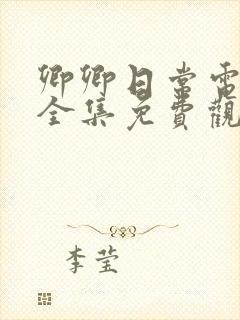 卿卿日常電
全集免費觀
李莹